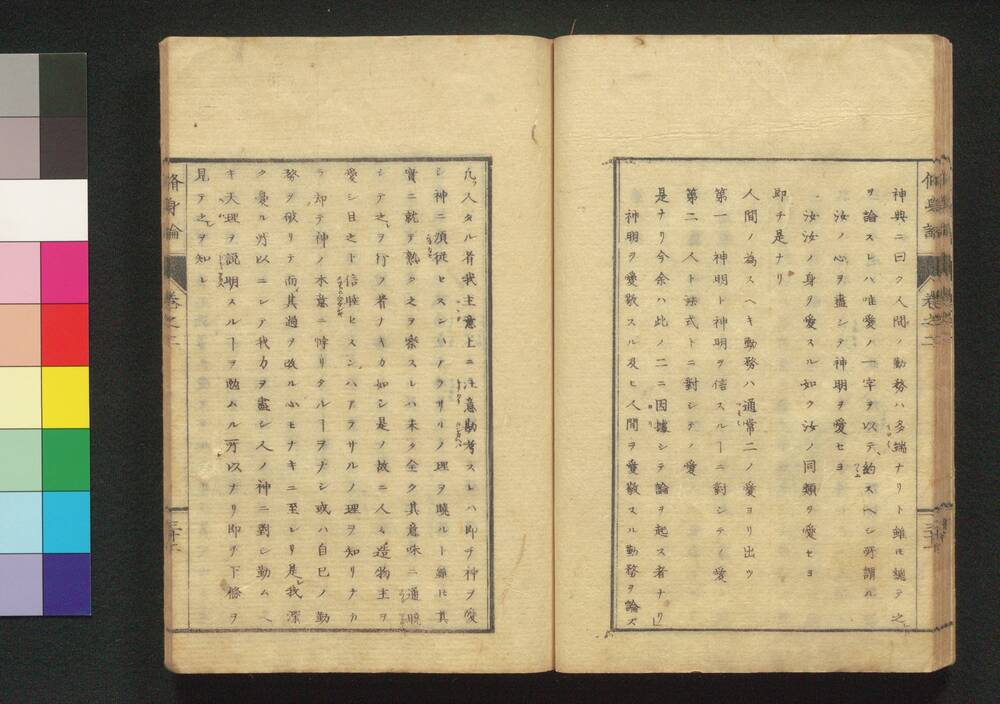 神典ニ曰ク人間ノ勤務ハ多端ナリト雖𪜈總テ之
ヲ論スレハ唯愛ノ一字ヲ以テ約スヘシ所謂ル
汝ノ心ヲ盡シテ神明ヲ愛セヨ
汝汝ノ身ヲ愛スル如ク汝ノ同類ヲ愛セヨ
即チ是ナリ
人間ノ為スヘキ動務ハ通常二ノ愛ヨリ出ツ
第一 神明ト神明ヲ信スルヿニ對シテノ愛
第二 人ト法式トニ對シテノ愛
是ナリ今余ハ此ノ二ニ因據シテ論ヲ起ス者ナリ
神明ヲ愛敬スル及ヒ人間ヲ愛敬スル勤務ヲ論ズ
脩身論
卷之二
三十一
凡ソ人タル者我主意上ニ注意勘考スレハ即チ神ヲ愛
シ神ニ順從セスンハアラサルノ理ヲ曉ルト雖𪜈其
實ニ就テ熟ク之ヲ察スレハ未タ全ク其意味ニ通暁
シテ之ヲ行フ者ナキカ如シ是ノ故ニ人々造物主ヲ
愛シ且之ト信睦セスンハアラサルノ理ヲ知リナカ
ラ却テ神ノ本意ニ悖リタルヿヲナシ或ハ自己ノ勤
務ヲ破リテ而其過ヲ改ル心モナキニ至レリ是我深
ク憂ル所以ニシテ我力ヲ盡シ人ノ神ニ對シ勤ムヘ
キ天理ヲ説明スルヿヲ勉ムル所以ナリ即チ下條ヲ
見テ之ヲ知レ
脩身論
卷之二
三十二